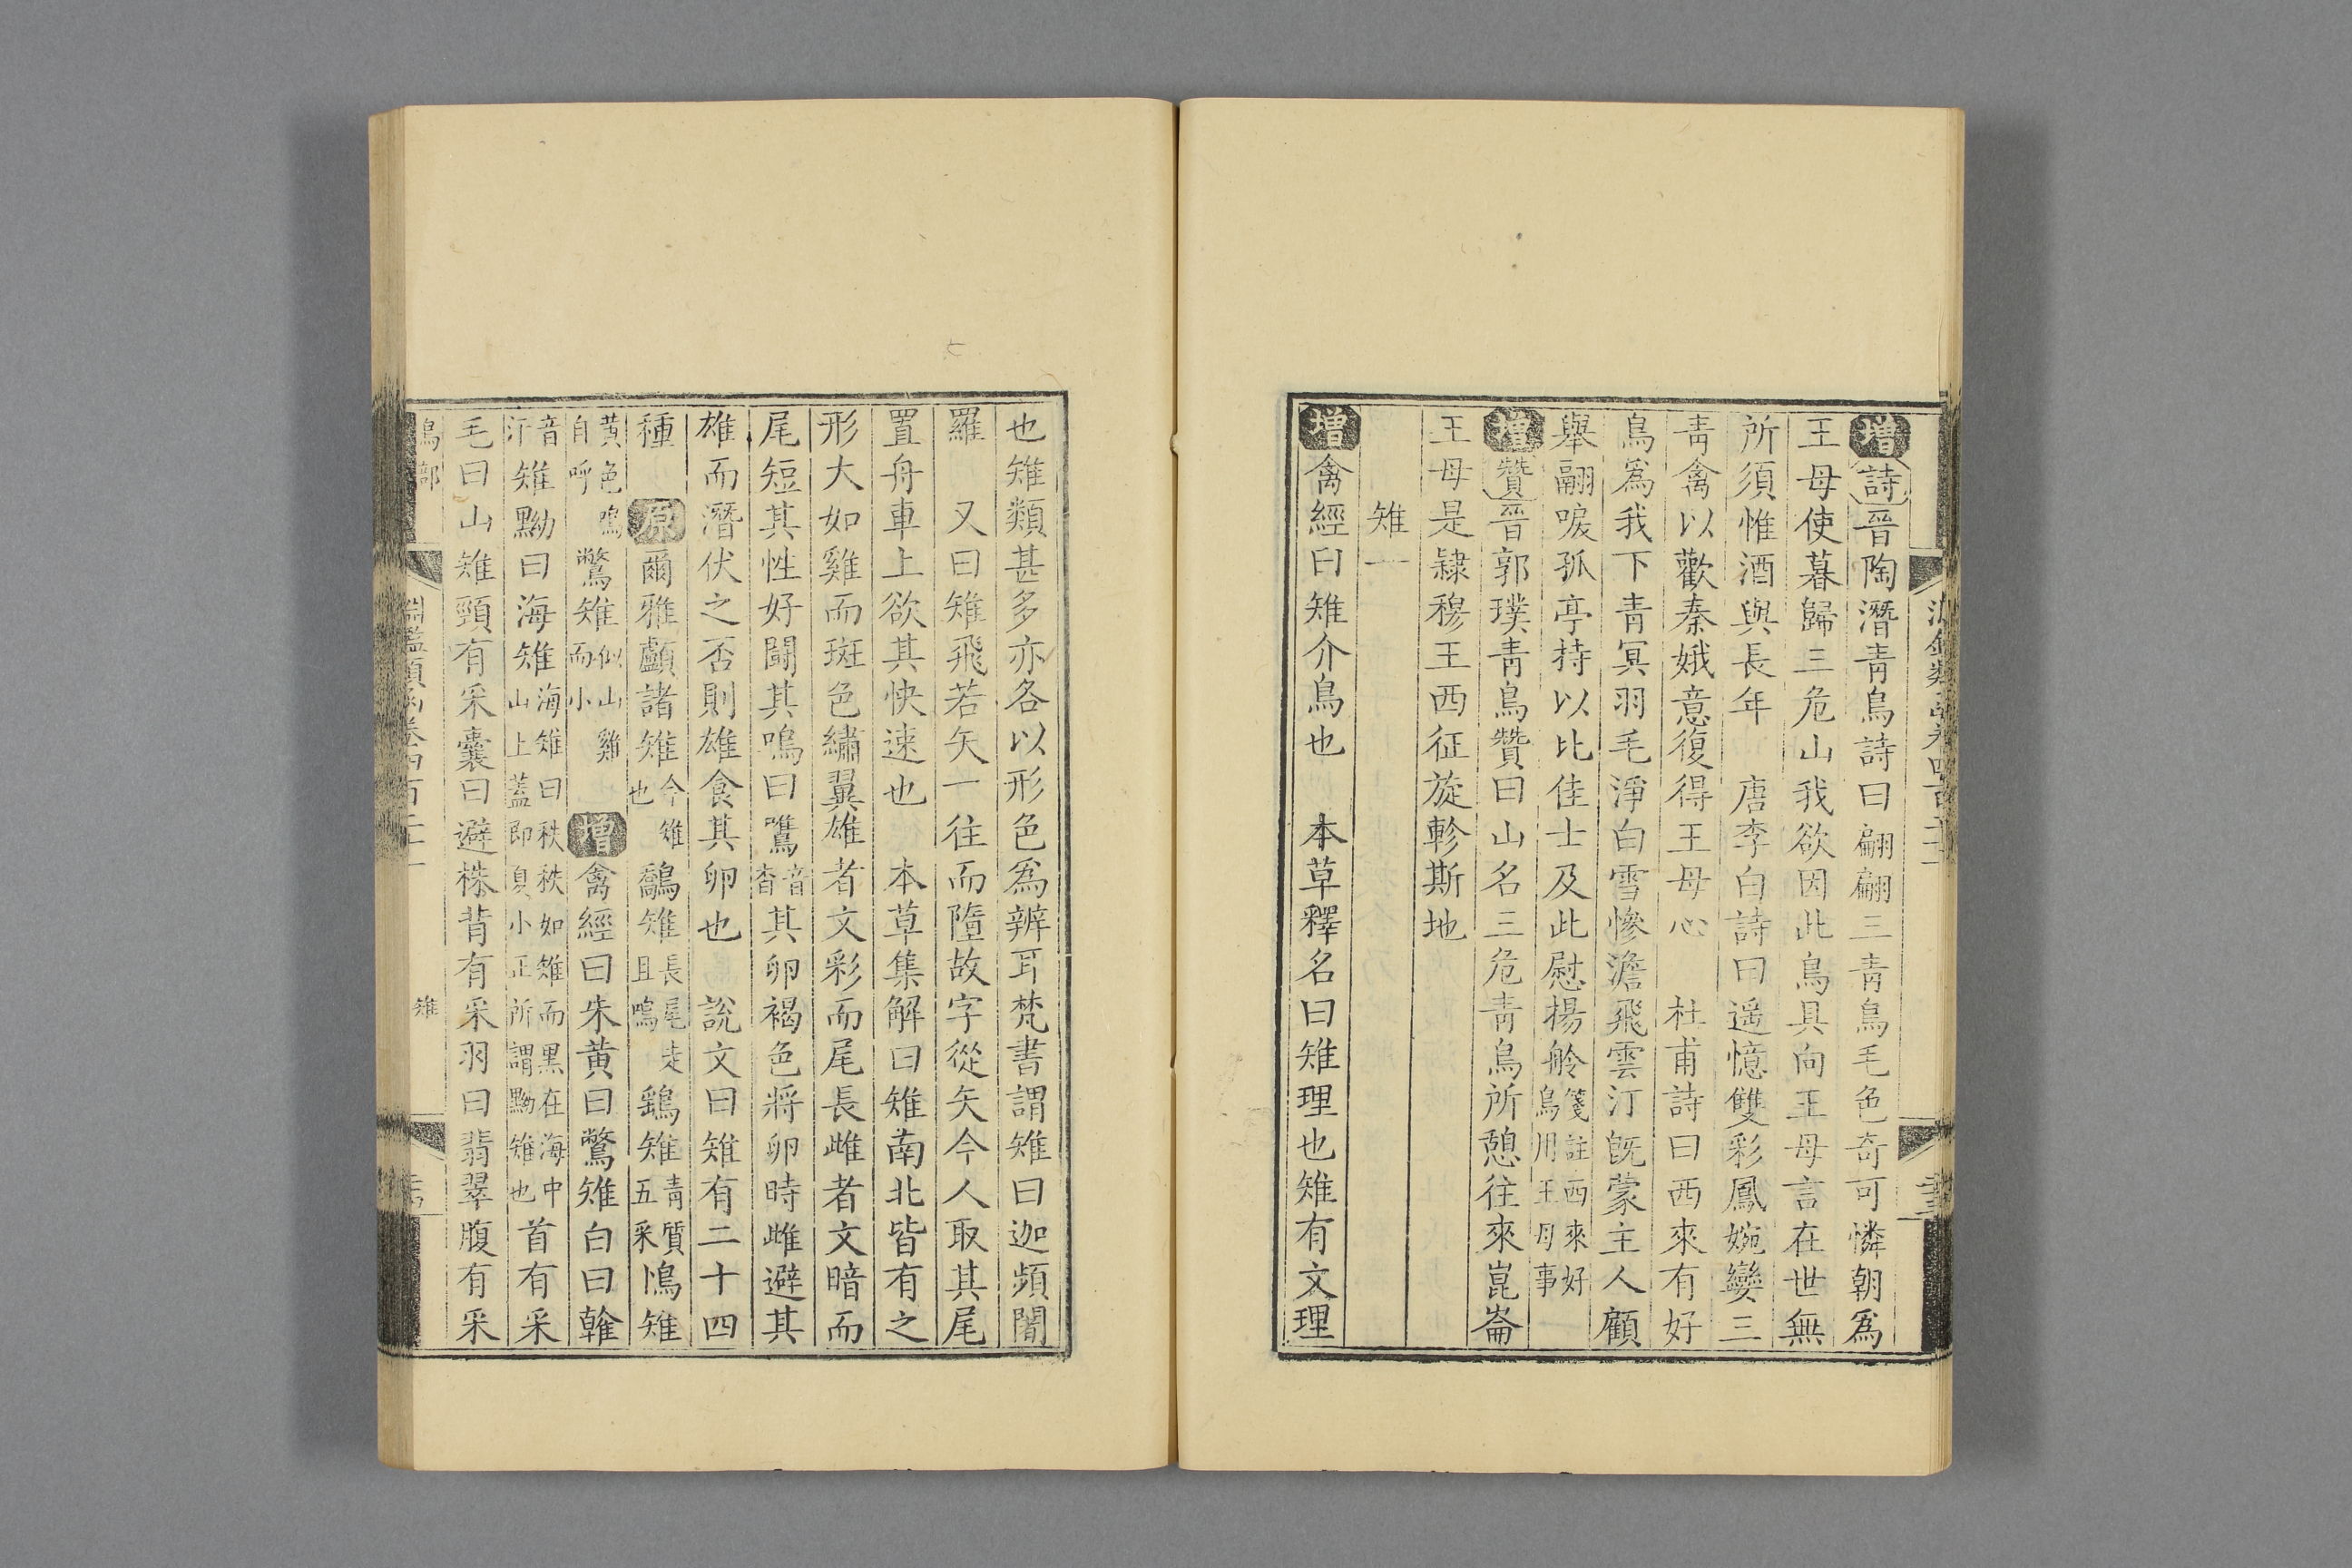 增詩晉陶潛青鳥詩曰翩翩三青鳥毛色奇可憐朝爲
王母使暮歸三危山我欲因此鳥具向王母言在世無
所須惟酒與長年　唐李白詩曰遥憶雙彩鳳婉孌三
青禽以歡秦娥意復得王母心　杜甫詩曰西來有好
鳥爲我下青冥羽毛淨白雪慘澹飛雲汀旣蒙主人顧
舉翮唳孤亭持以比佳士及此慰揚舲箋註西來好鳥用王母事
增贊晉郭璞青鳥贊曰山名三危青鳥所憩往來崑崙
王母是隷穆王西征旋軫斯地
雉一
增禽經曰雉介鳥也　本草釋名曰雉理也雉有文理
也雉類甚多亦各以形色爲辨耳梵書謂雉曰迦頻闍
羅　又曰雉飛若矢一往而墮故字從矢今人取其尾
置舟車上欲其快速也　本草集解曰雉南北皆有之
形大如雞而斑色繡翼雄者文彩而尾長雌者文暗而
尾短其性好鬬其鳴曰鷕音杳其卵褐色將卵時雌避其
雄而潛伏之否則雄食其卵也　說文曰雉有二十四
種　原爾雅鸕諸雉今雉也鷮雉長尾走且鳴鷂雉青質五采鳪雉
黃色鳴自呼鷩雉似山雞而小　增禽經曰朱黃曰鷩雉白曰雗
音汗雉黝曰海雉海雉曰秩秩如雉而黑在海中山上蓋即負小正所謂黝雉也首有采
毛曰山雉頸有采囊曰避株背有采羽曰翡翠腹有采
鳥部
淵鑑類函卷四百二十一
雉